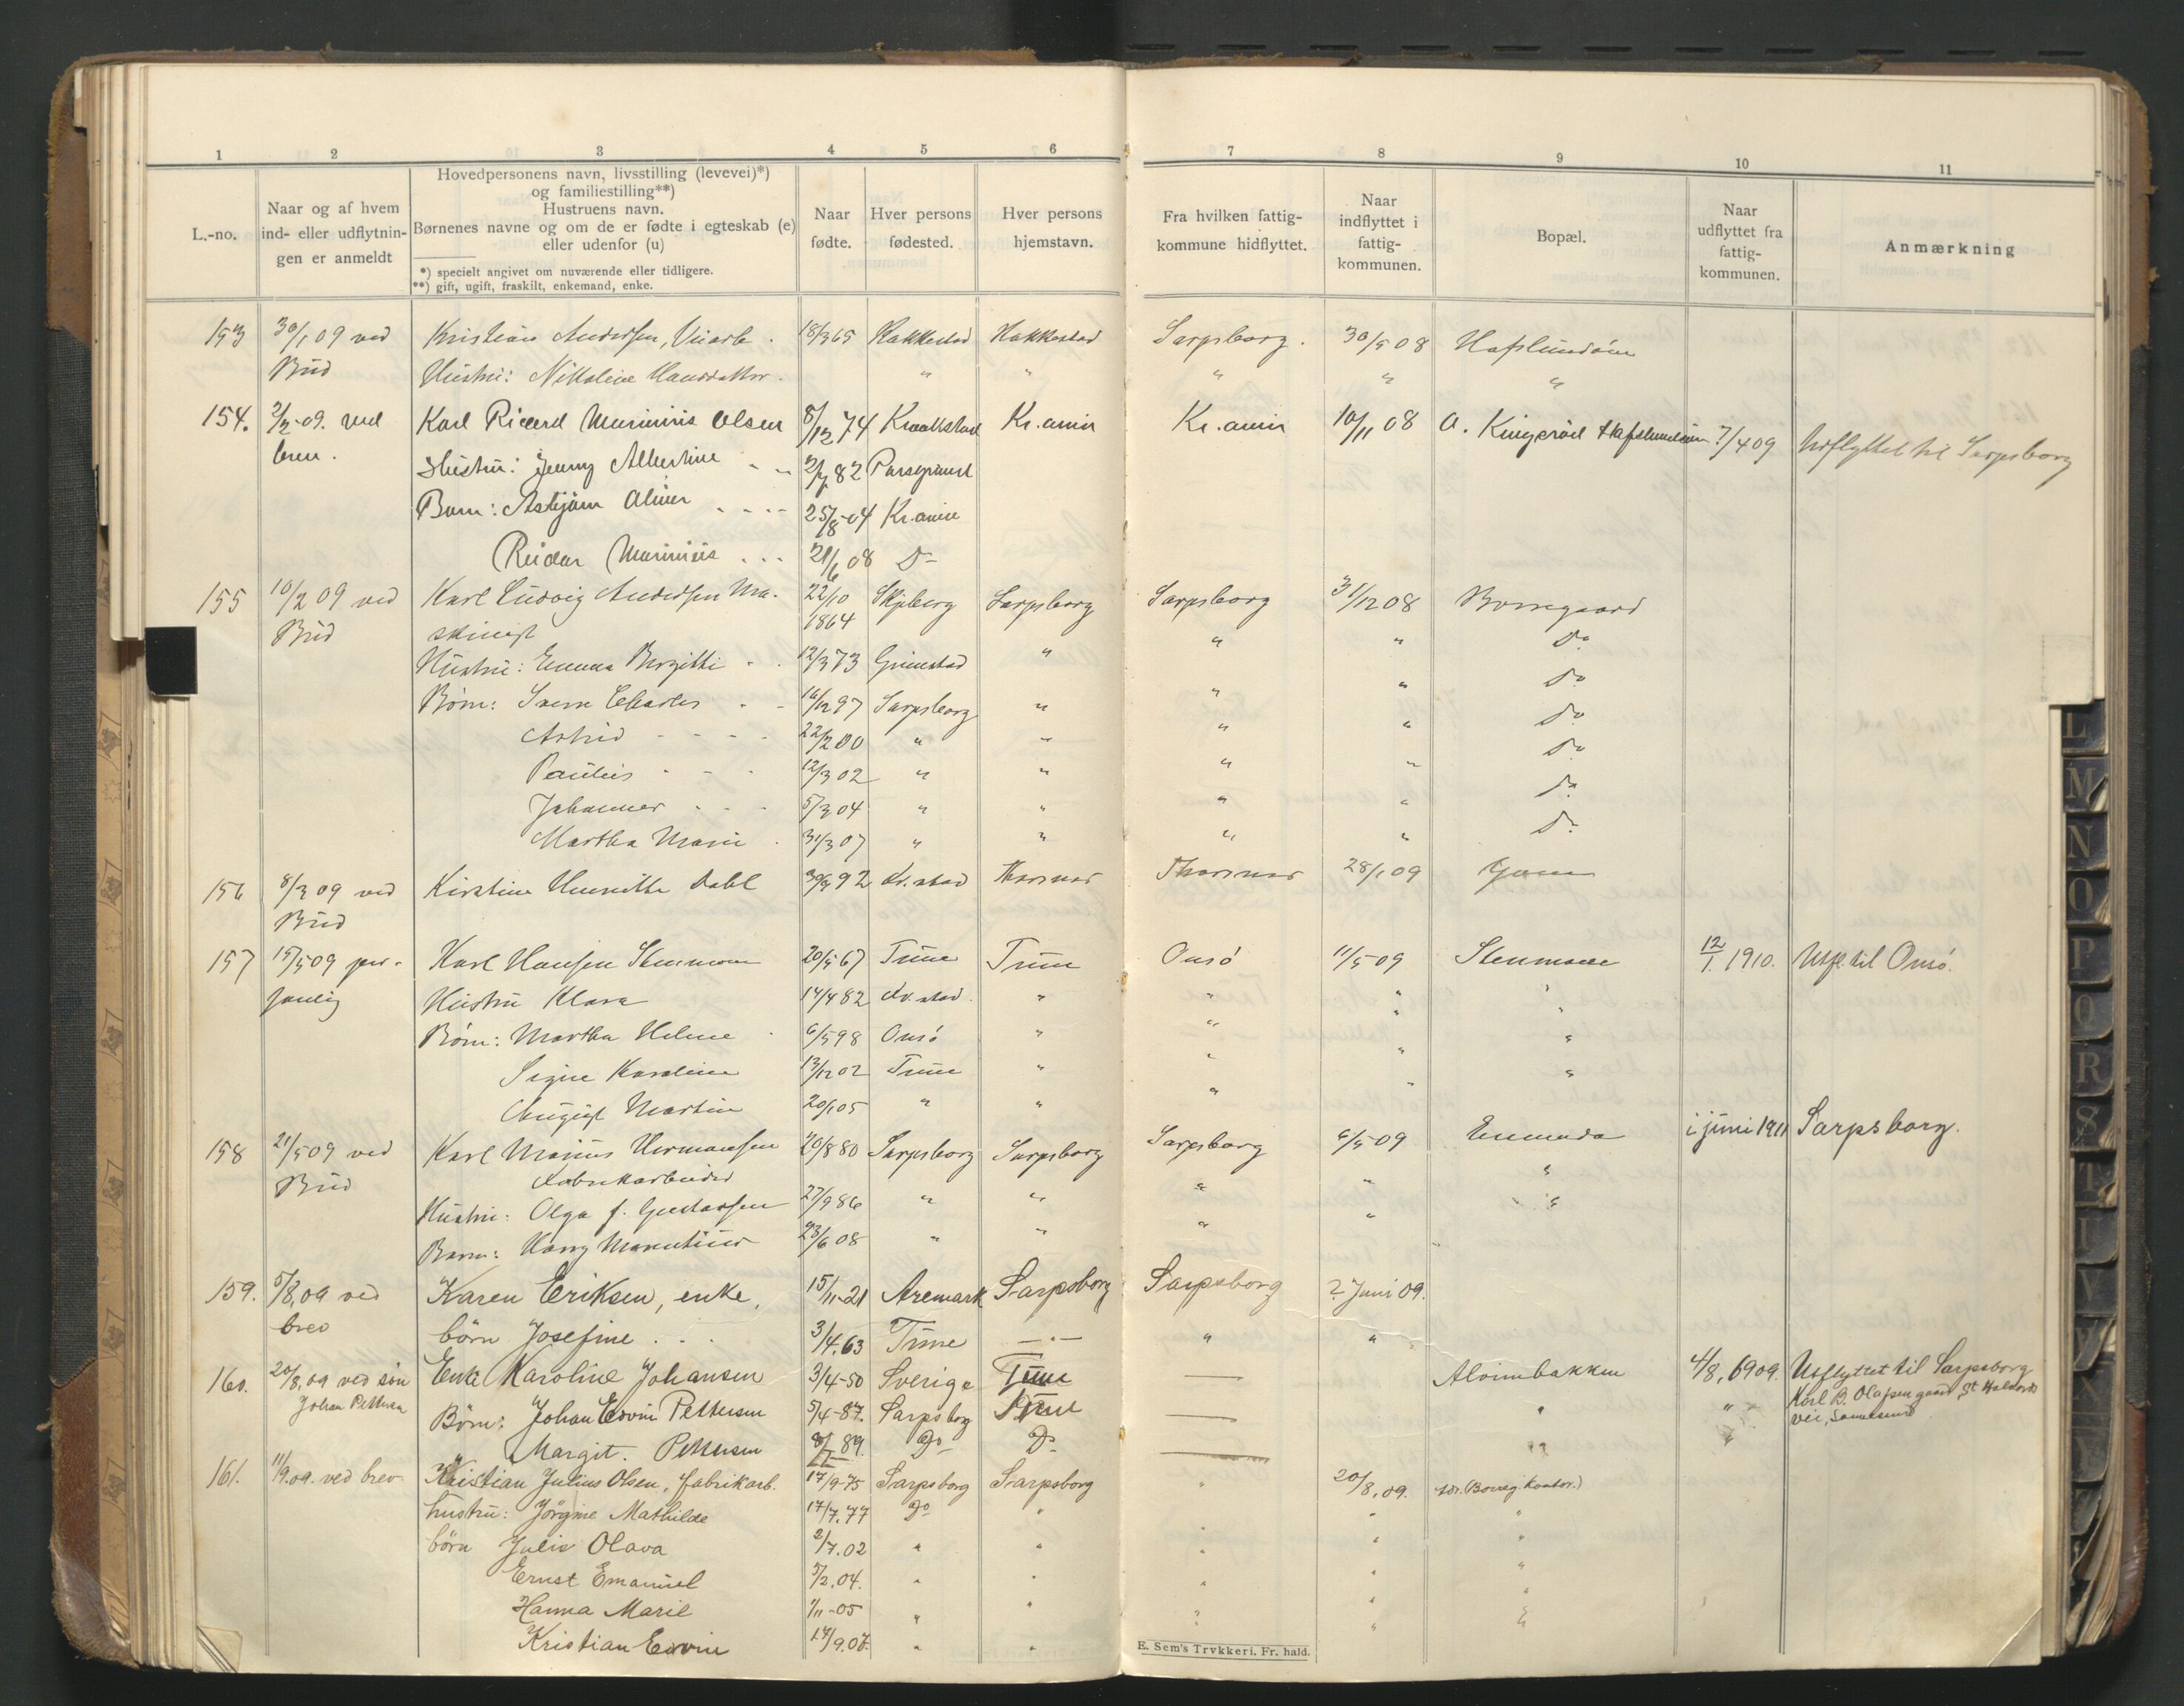 1 2 3 4 5 6 7 8 9 10 11
L.-no.
Naar og af hvem
ind- eller udflytnin-
gen er anmeldt
Hovedpersonens navn, livsstilling (levevei)*)
og familiestilling**)
Hustruens navn.
Børnenes navne og om de er fødte i egteskab (e)
eller udenfor (u)
*) specielt angivet om nuværende eller tidligere.
**) gift, ugift, fraskilt, enkemand, enke.
Naar
fødte.
Hver persons
fødested.
Hver persons
hjemstavn.
Fra hvilken fattig-
kommune hidflyttet.
Naar
indflyttet i
fattig-
kommunen.
Bopæl.
Naar
udflyttet fra
fattig-
kommunen.
Anmærkning
153 30/1 09 ved Kristian Andersen, 18/3 65 Rakkestad Rakkestad Sarpsborg. 30/5 08
Bud Hustru: Nikoline Hansdatter. " " " " "
154. 2/2-09. ved Karl Marinius Olsen 8/12 74 Kraakstad Kr.ania Kr.ania 10/11 08 7/4 09 Udflyttet til Sarpsborg
brev. Hustru: Jenny Albertine 82
Barn: Oliver 25/8-04 Kr.ania
Reidar Marinius 21/6 08 Do
155 10/2 09 ved Karl Ludvig Andersen Ma- 22/10 Skjeberg Sarpsborg Sarpsborg 31/12 08 Borregaard
Bud skinist 1864
Hustru: Emma Birgitte 12/3 73 Grimstad " " " Do
Børn: Sverre Charles 16/12 97 Sarpsborg " " " Do
Astrid 22/2 00 " " " " Do
Paulus 12/3 02 " " " " Do
Johannes 5/3 04 " " " " Do
Martha Marie 31/3 07 " " " " Do
156 8/3 09 ved Kirstine Henriette Dahl 92 Fr.stad Thorsnes Thorsnes 28/1 09
Bud
157 15/5 09 per- Karl Hansen 20/5 67 Tune Tune Onsö 11/5 09 12/1. 1910. Udfl. til Onsö.
sonlig Hustru Klara 14/4 82 Fr.stad. " " " "
Børn: Martha Helene 6/5 98 Onsö " " " "
Signe Karoline 13/12 02 Tune " " " "
August Martin 20/1 05 " " "
158 21/5 09 ved Karl Marius Hermansen 20/8 80 Sarpsborg Sarpsborg Sarpsborg 6/5 09 Enmeda i juni 1911 Sarpsborg.
Bud Fabrikarbeider
Hustru: Olga f. Gustavsen 27/9 86 " " " " "
Barn: Harry 23/6 08 " " " " "
159. 5/8,09 ved Karen Eriksen, enke, 15/11-21 Aremark Sarpsborg Sarpsborg ? Juni 09.
brev børn Josefine . . . 3/4.63 Tune — " — " "
160. 20/8,09 ved sön Enke Karoline Johansen 3/4-50 Sverige Tune — Alvimbakken 4/8, 09. Udflyttet til Sarpsborg
Johan Pettersen Børn: Johan Edvin Pettersen 5/4-87. Sarpsborg Tune — " " Karl B. Olafsen gaard, St Halvords
vei,
Margit. Pettersen 89. Do Do — " "
161. 11/9.09. ved brev. Kristian Julius Olsen, fabrikarb. 17/9-75 Sarpsborg Sarpsborg " 20/8,09. (Borreg. Kontor.)
hustru: Jörgine Mathilde 17/7.77 Do " " " "
børn Julie Olava 2/7.02 " " " " "
Ernst Emanuel 5/2.04. " " " " "
Hanna Marie 1/11-05 " " " " "
Kristian Edvin 17/9.07. " "
E. Sem's Trykkeri. Fr. hald.
L
M
N
O
P
Q
R
S
T
U
V
W
X
Y